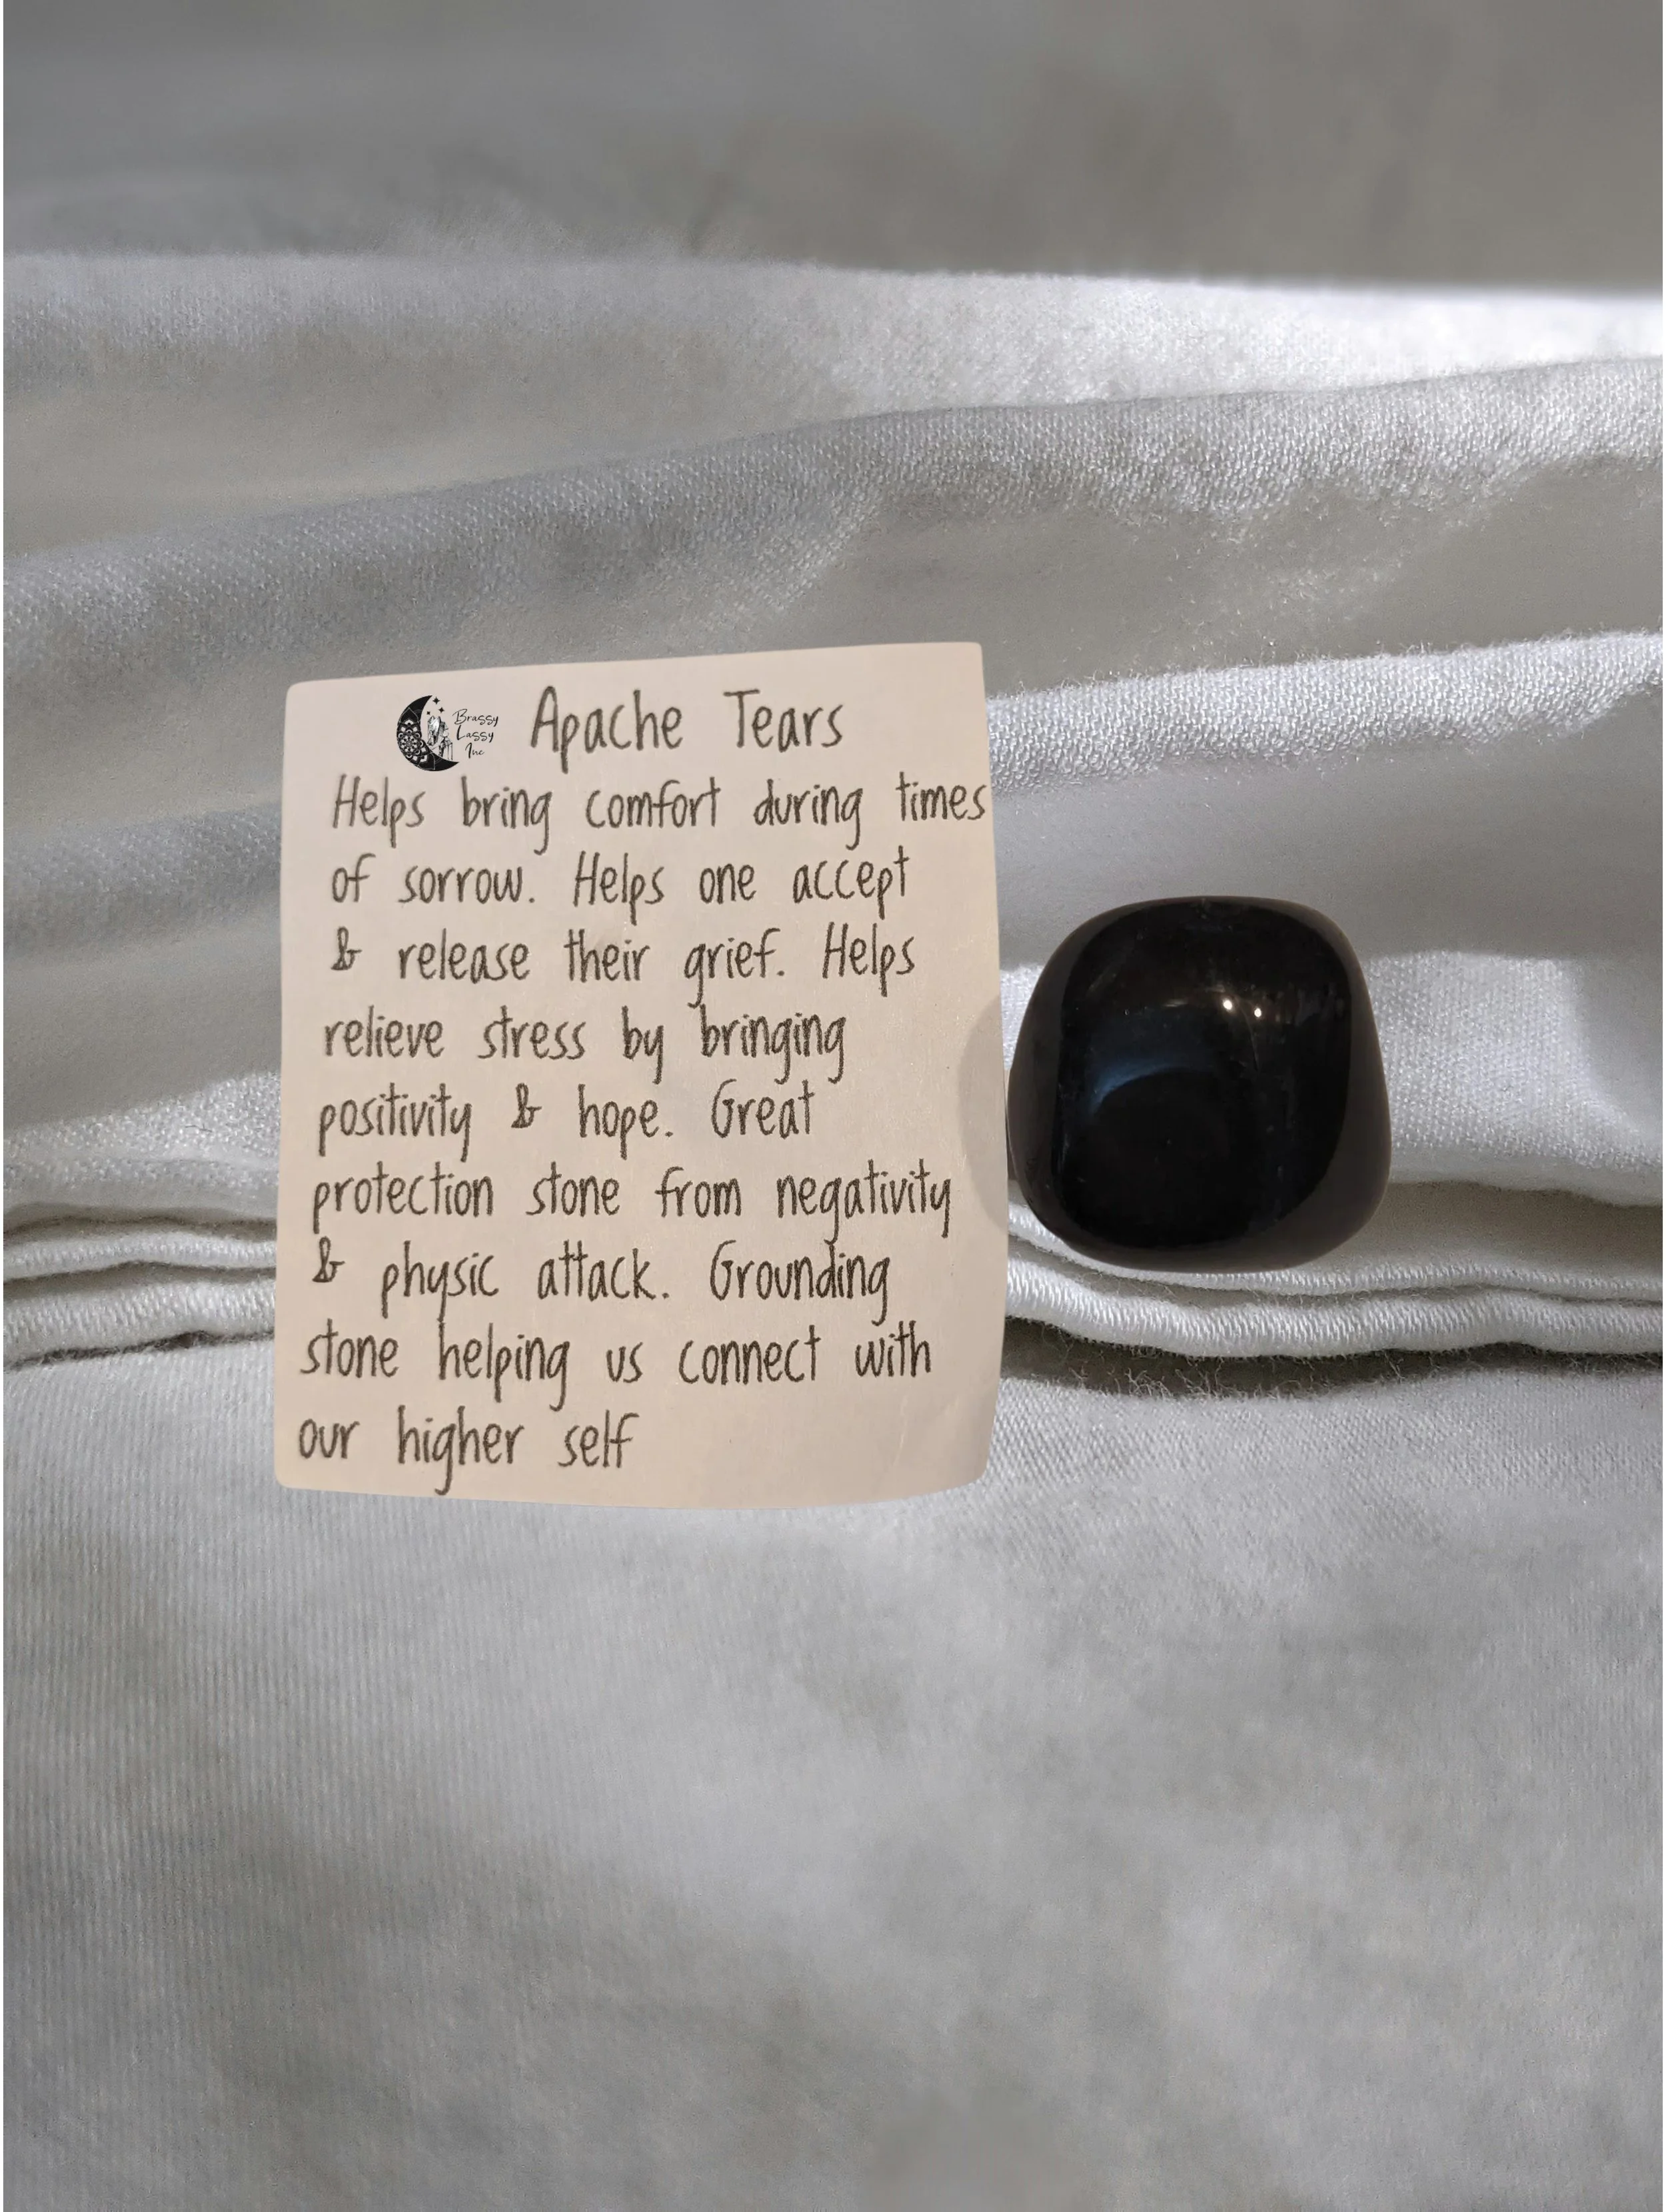 Brassy
Lassy
Inc
Apache Tears
Helps bring comfort during times
of sorrow. Helps one accept
& release their grief. Helps
relieve stress by bringing
positivity & hope. Great
protection stone from negativity
& physic attack. Grounding
stone helping us connect with
our higher self